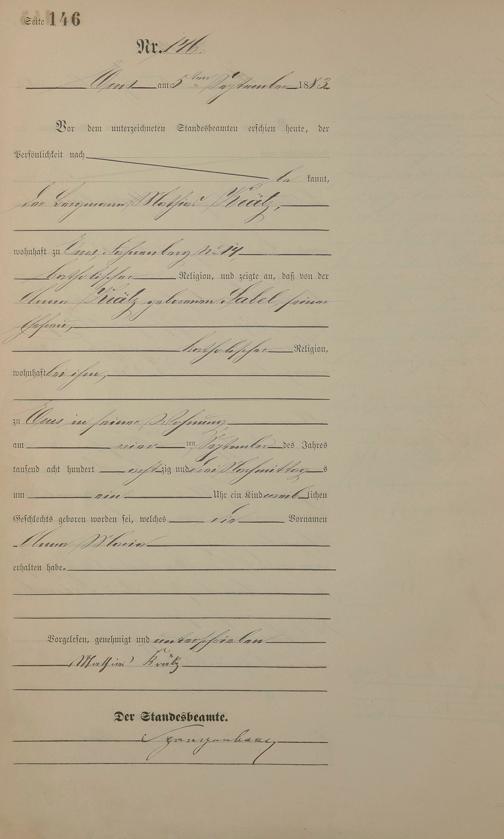 Seite 146
Nr. 146.
Ems am 5ten September 1883
Vor dem unterzeichneten Standesbeamten erschien heute, der
Persönlichkeit nach
be kannt,
der Bergmann Mathias Krätz,
wohnhaft zu Ems, No 14
katholischer Religion, und zeigte an, daß von der
Anna Krätz geborenen Sabel seiner
Ehefrau,
katholischer Religion,
wohnhaft bei ihm,
zu Ems in seiner Wohnung
am vier ten September des Jahres
tausend acht hundert acht zig und drei Nachmittag s
um ein Uhr ein Kind weib lichen
Geschlechts geboren worden sei, welches die Vornamen
Anna Maria
erhalten habe.
Vorgelesen, genehmigt und unterschrieben
Mathias Krätz
Der Standesbeamte.
Spangenberg